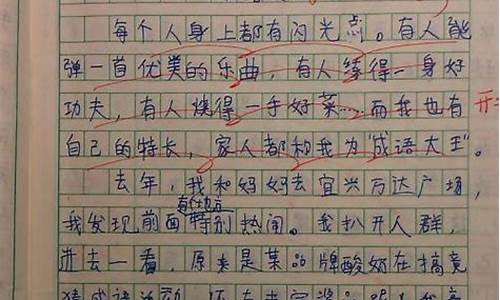 每个人身上都有闪光点。有人能
弹一首优美的乐曲，有人练得一身好
功夫，有人烧得一手好菜……而我也有
自己的特长，家人都和我为“成语大王”。
去年，我和妈妈去宜兴万达广场，
我发现前面有个地方特别热闹。我扒开人群，
进去一看，原来是某品牌酸奶在搞竞
猜成语活动